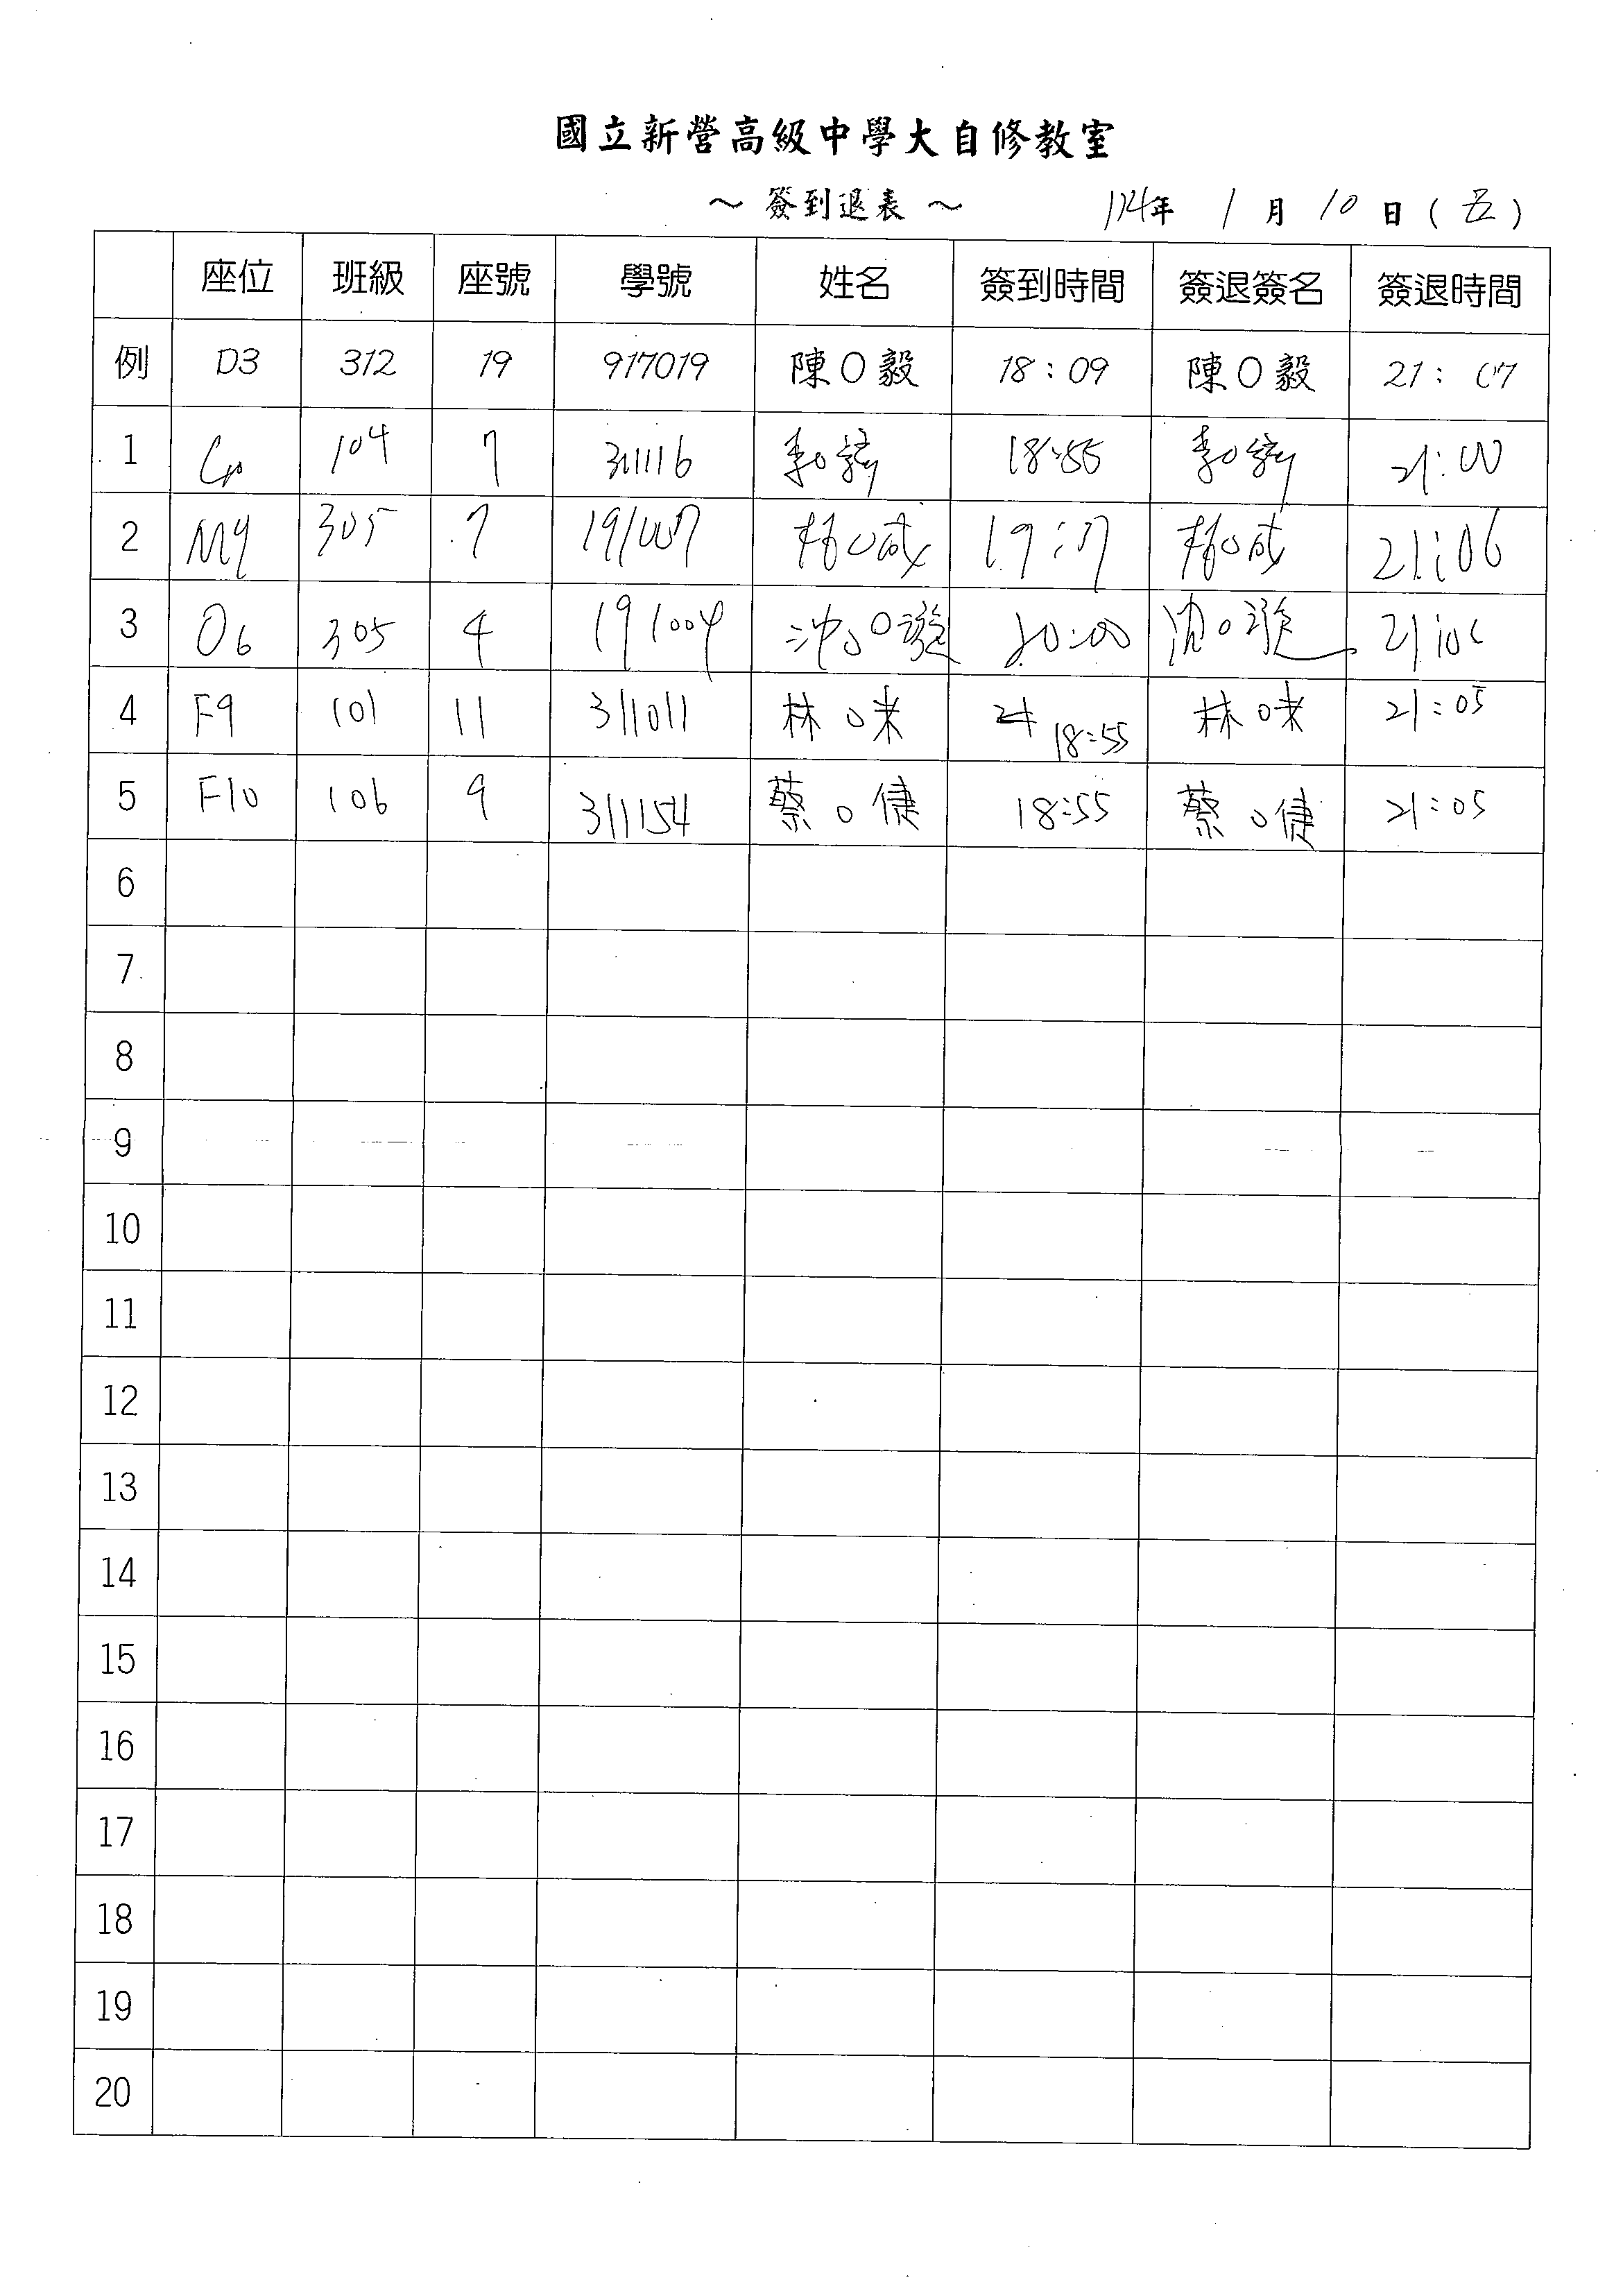 國立新營高級中學大自修教室
～ 簽到退表 ～ 114年 1 月 10 日 ( 五 )
座位 班級 座號 學號 姓名 簽到時間 簽退簽名 簽退時間
例 D3 312 19 917019 陳O毅 18:09 陳O毅 21:07
1 104 7 311116 李O 18:55 李O 21:00
2 M9 305 7 191007 楊O成 19:17 楊O成 21:06
3 O6 305 4 191004 沈O 20:00 沈O 21:06
4 F9 101 11 311011 林O 18:55 林O 21:05
5 F10 106 9 311154 蔡O倢 18:55 蔡O倢 21:05
6
7
8
9
10
11
12
13
14
15
16
17
18
19
20